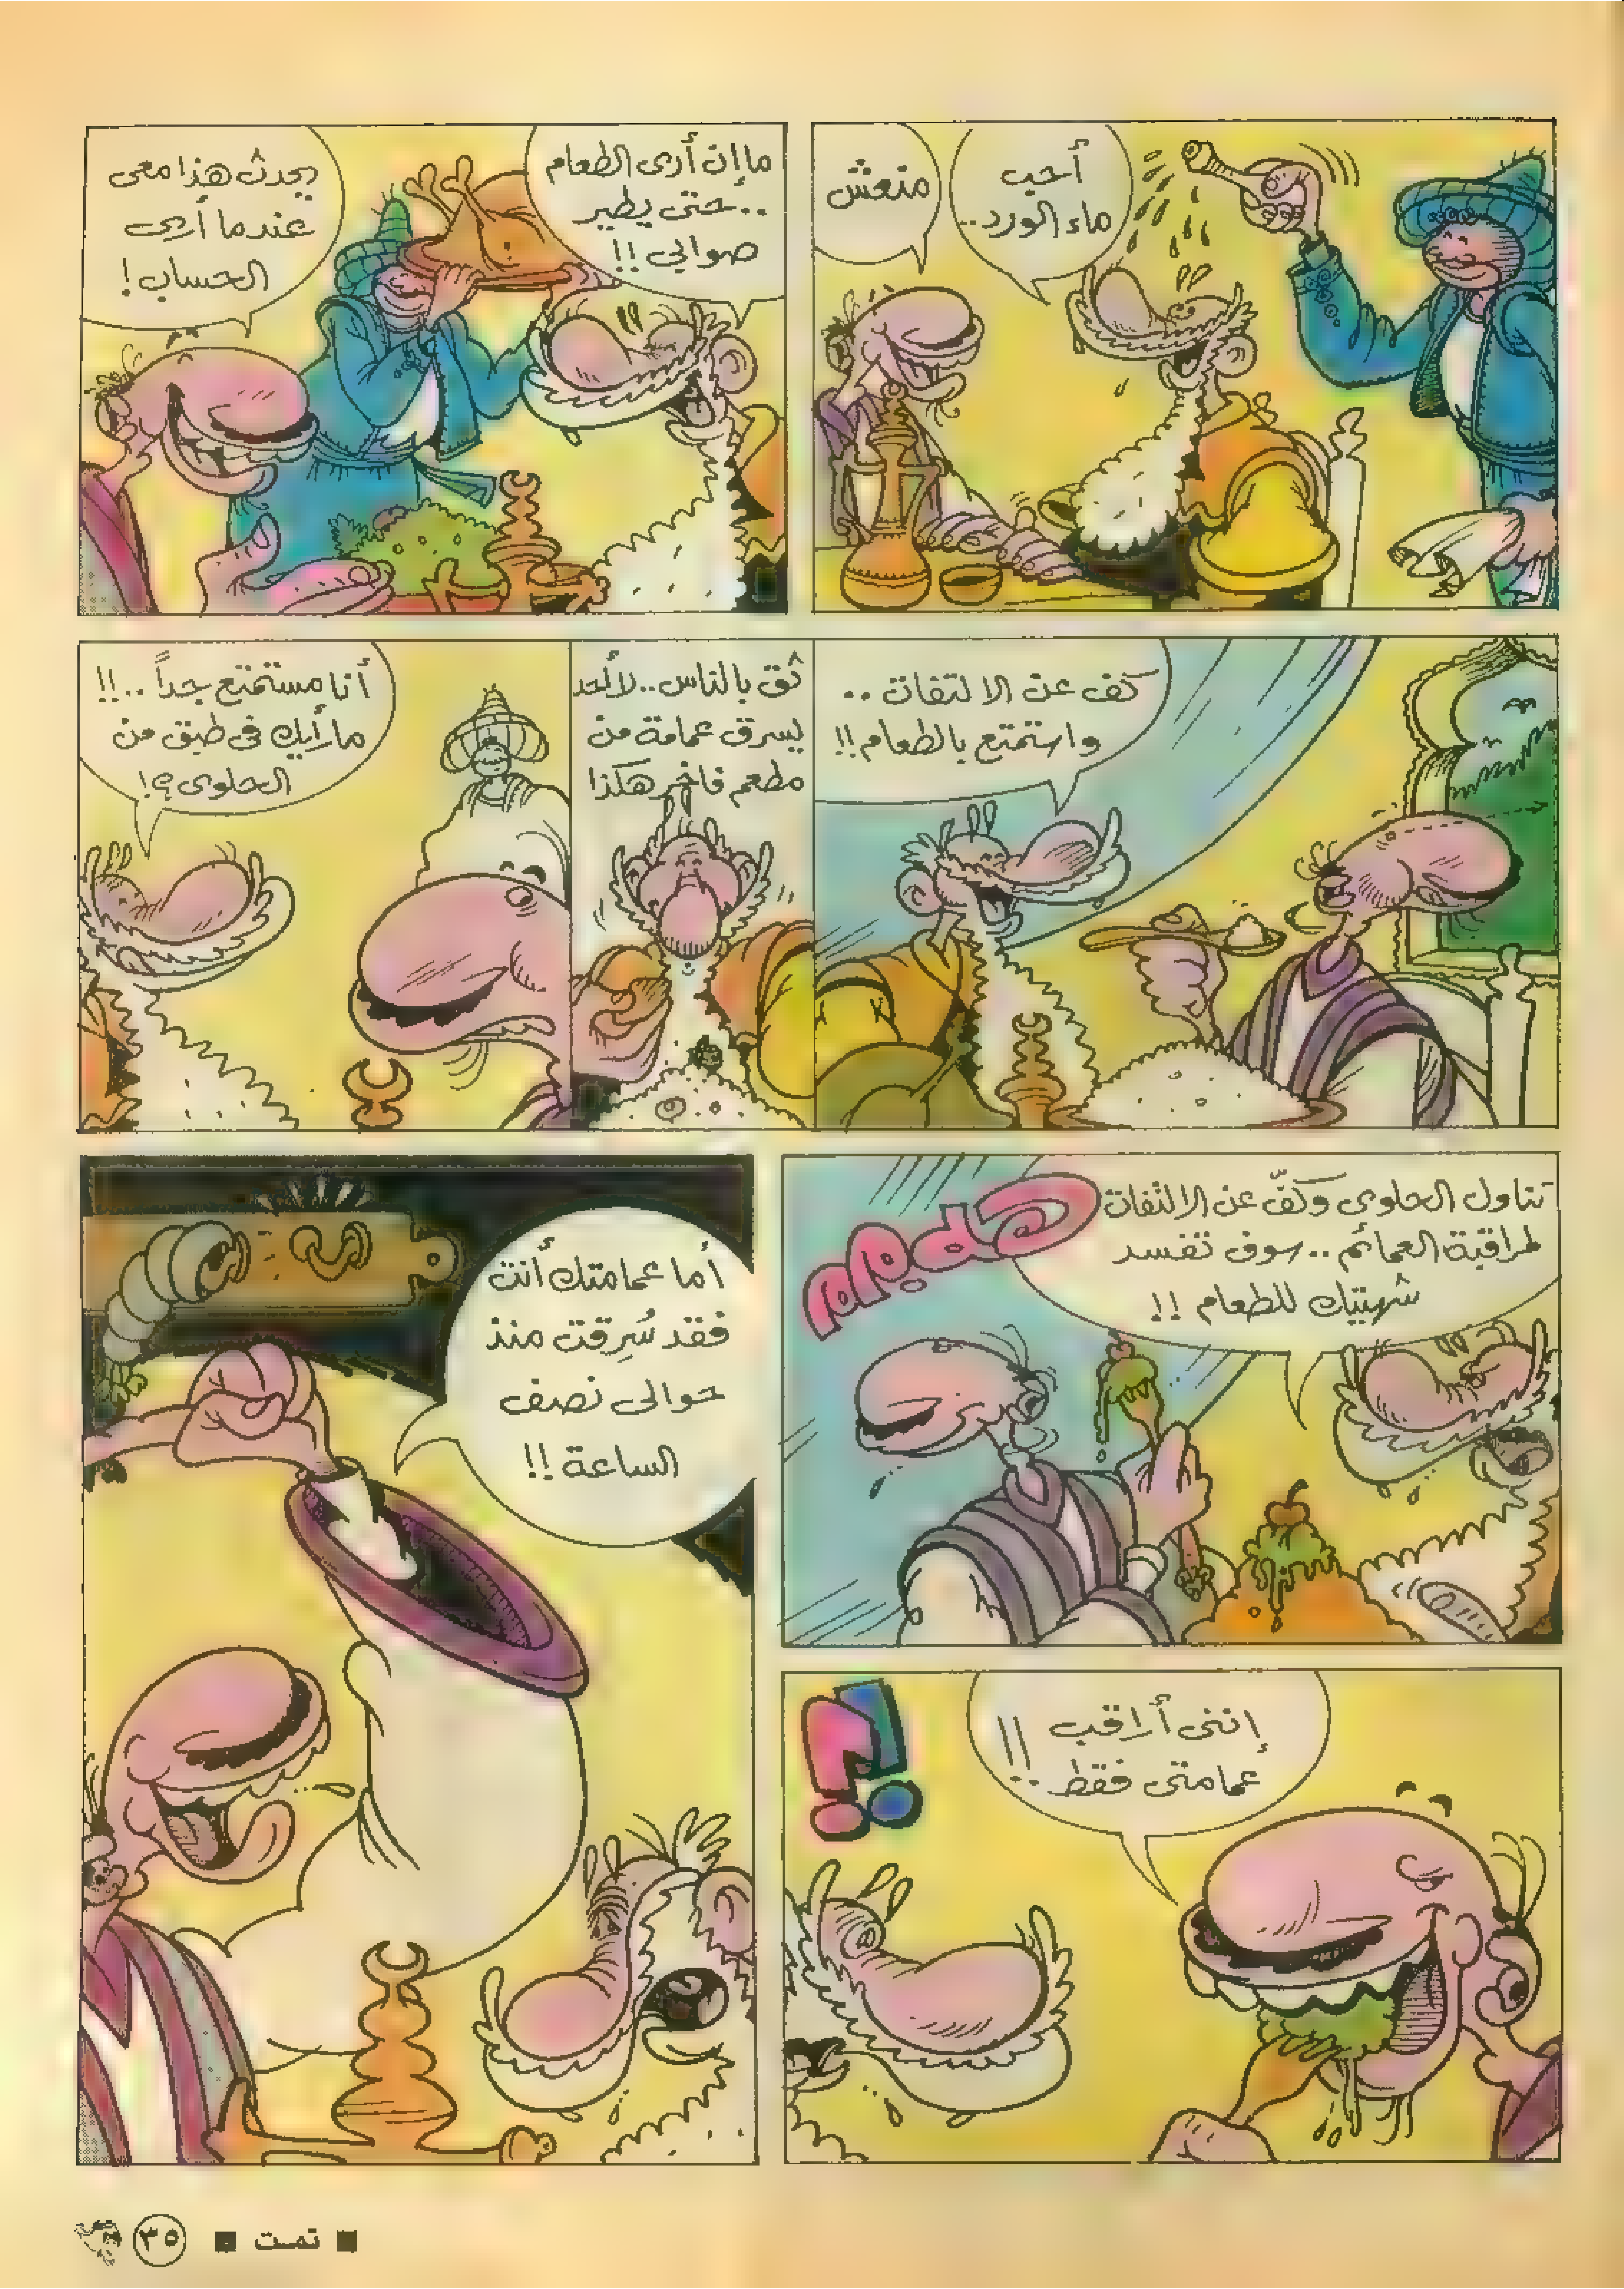 أحب
ماء الورد..
منعش
ما إن أرى الطعام
..حتى يطير
صوابي !!
يحدث هذا معى
عندما أرى
الحساب !
كف عن الالتفات ..
واستمتع بالطعام !!
ثق بالناس .. لا أحد
يسرق عمامة من
مطعم فاخر هكذا
أنا مستمتع جداً ..!!
ما رأيك فى طبق من
الحلوى ؟!
تناول الحلوى وكفّ عن الالتفات
لمراقبة العمائم .. سوف تفسد
شهيتك للطعام !!
إننى أراقب
عمامتى فقط ..!!
؟!
أما عمامتك أنت
فقد سُرِقت منذ
حوالى نصف
الساعة !!
■ تمـت ■ ٣٥